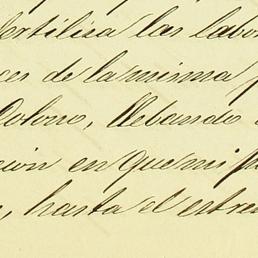 fertilisa las labo
es de la misma p
Colono, llebando
cion en que mi p
, hasta el estre